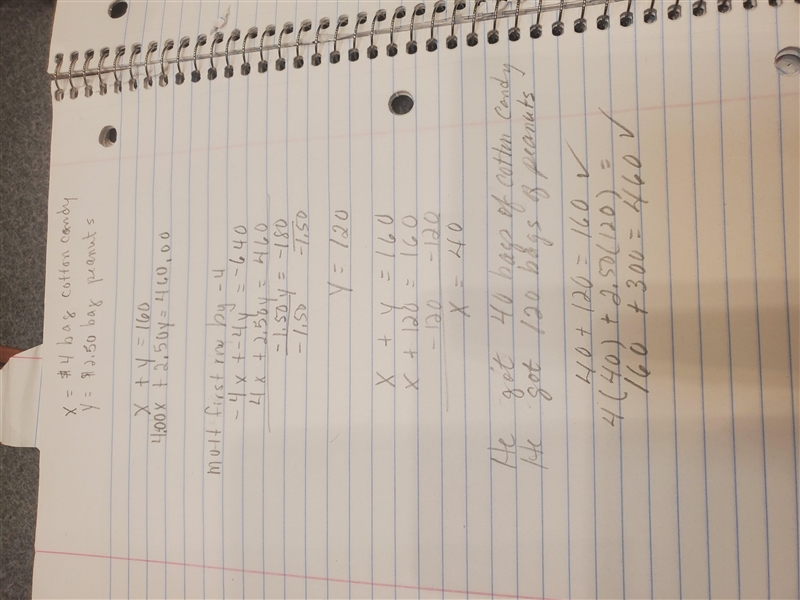 x = $4 bag cotton candy
y = $2.50 bag peanuts
x + y = 160
4.00x + 2.50y = 460.00
mult first row by -4
-4x + -4y = -640
4x + 2.50y = 460
-1.50y = -180
-1.50 -1.50
y = 120
x + y = 160
x + 120 = 160
-120 -120
x = 40
He got 40 bags of cotton candy
He got 120 bags of peanuts!
40 + 120 = 160 ✓
4(40) + 2.50(120) =
160 + 300 = 460 ✓